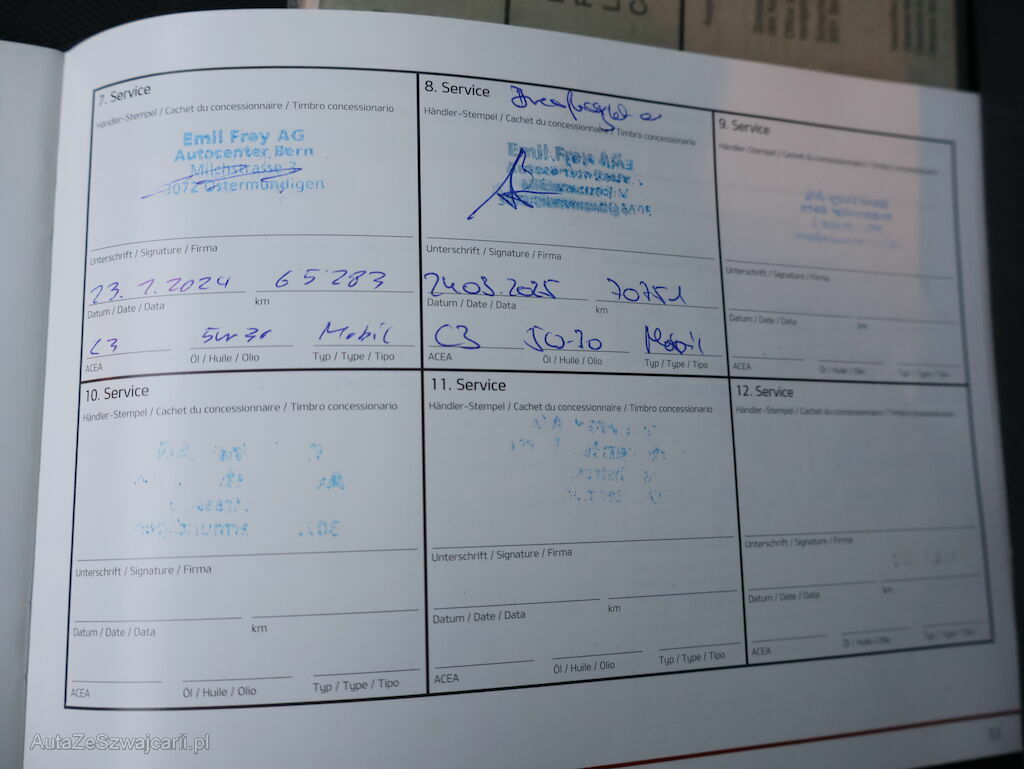 7. Service
Händler-Stempel / Cachet du concessionnaire / Timbro concessionario
Emil Frey AG
Autocenter Bern
Milchstrasse 3
3072 Ostermundigen
Unterschrift / Signature / Firma
23. 1. 2024 65283
Datum / Date / Data km
C3 5w30 Mobil
ACEA Öl / Huile / Olio Typ / Type / Tipo
8. Service
Händler-Stempel / Cachet du concessionnaire / Timbro concessionario
Emil Frey AG
Unterschrift / Signature / Firma
70751
Datum / Date / Data km
C3 Mobil
ACEA Öl / Huile / Olio Typ / Type / Tipo
9. Service
Händler-Stempel / Cachet du concessionnaire / Timbro concessionario
Unterschrift / Signature / Firma
Datum / Date / Data km
ACEA Öl / Huile / Olio Typ / Type / Tipo
10. Service
Händler-Stempel / Cachet du concessionnaire / Timbro concessionario
Unterschrift / Signature / Firma
Datum / Date / Data km
ACEA Öl / Huile / Olio Typ / Type / Tipo
11. Service
Händler-Stempel / Cachet du concessionnaire / Timbro concessionario
Unterschrift / Signature / Firma
Datum / Date / Data km
ACEA Öl / Huile / Olio Typ / Type / Tipo
12. Service
Händler-Stempel / Cachet du concessionnaire / Timbro concessionario
Unterschrift / Signature / Firma
Datum / Date / Data km
ACEA Öl / Huile / Olio Typ / Type / Tipo
AutaZeSzwajcarii.pl